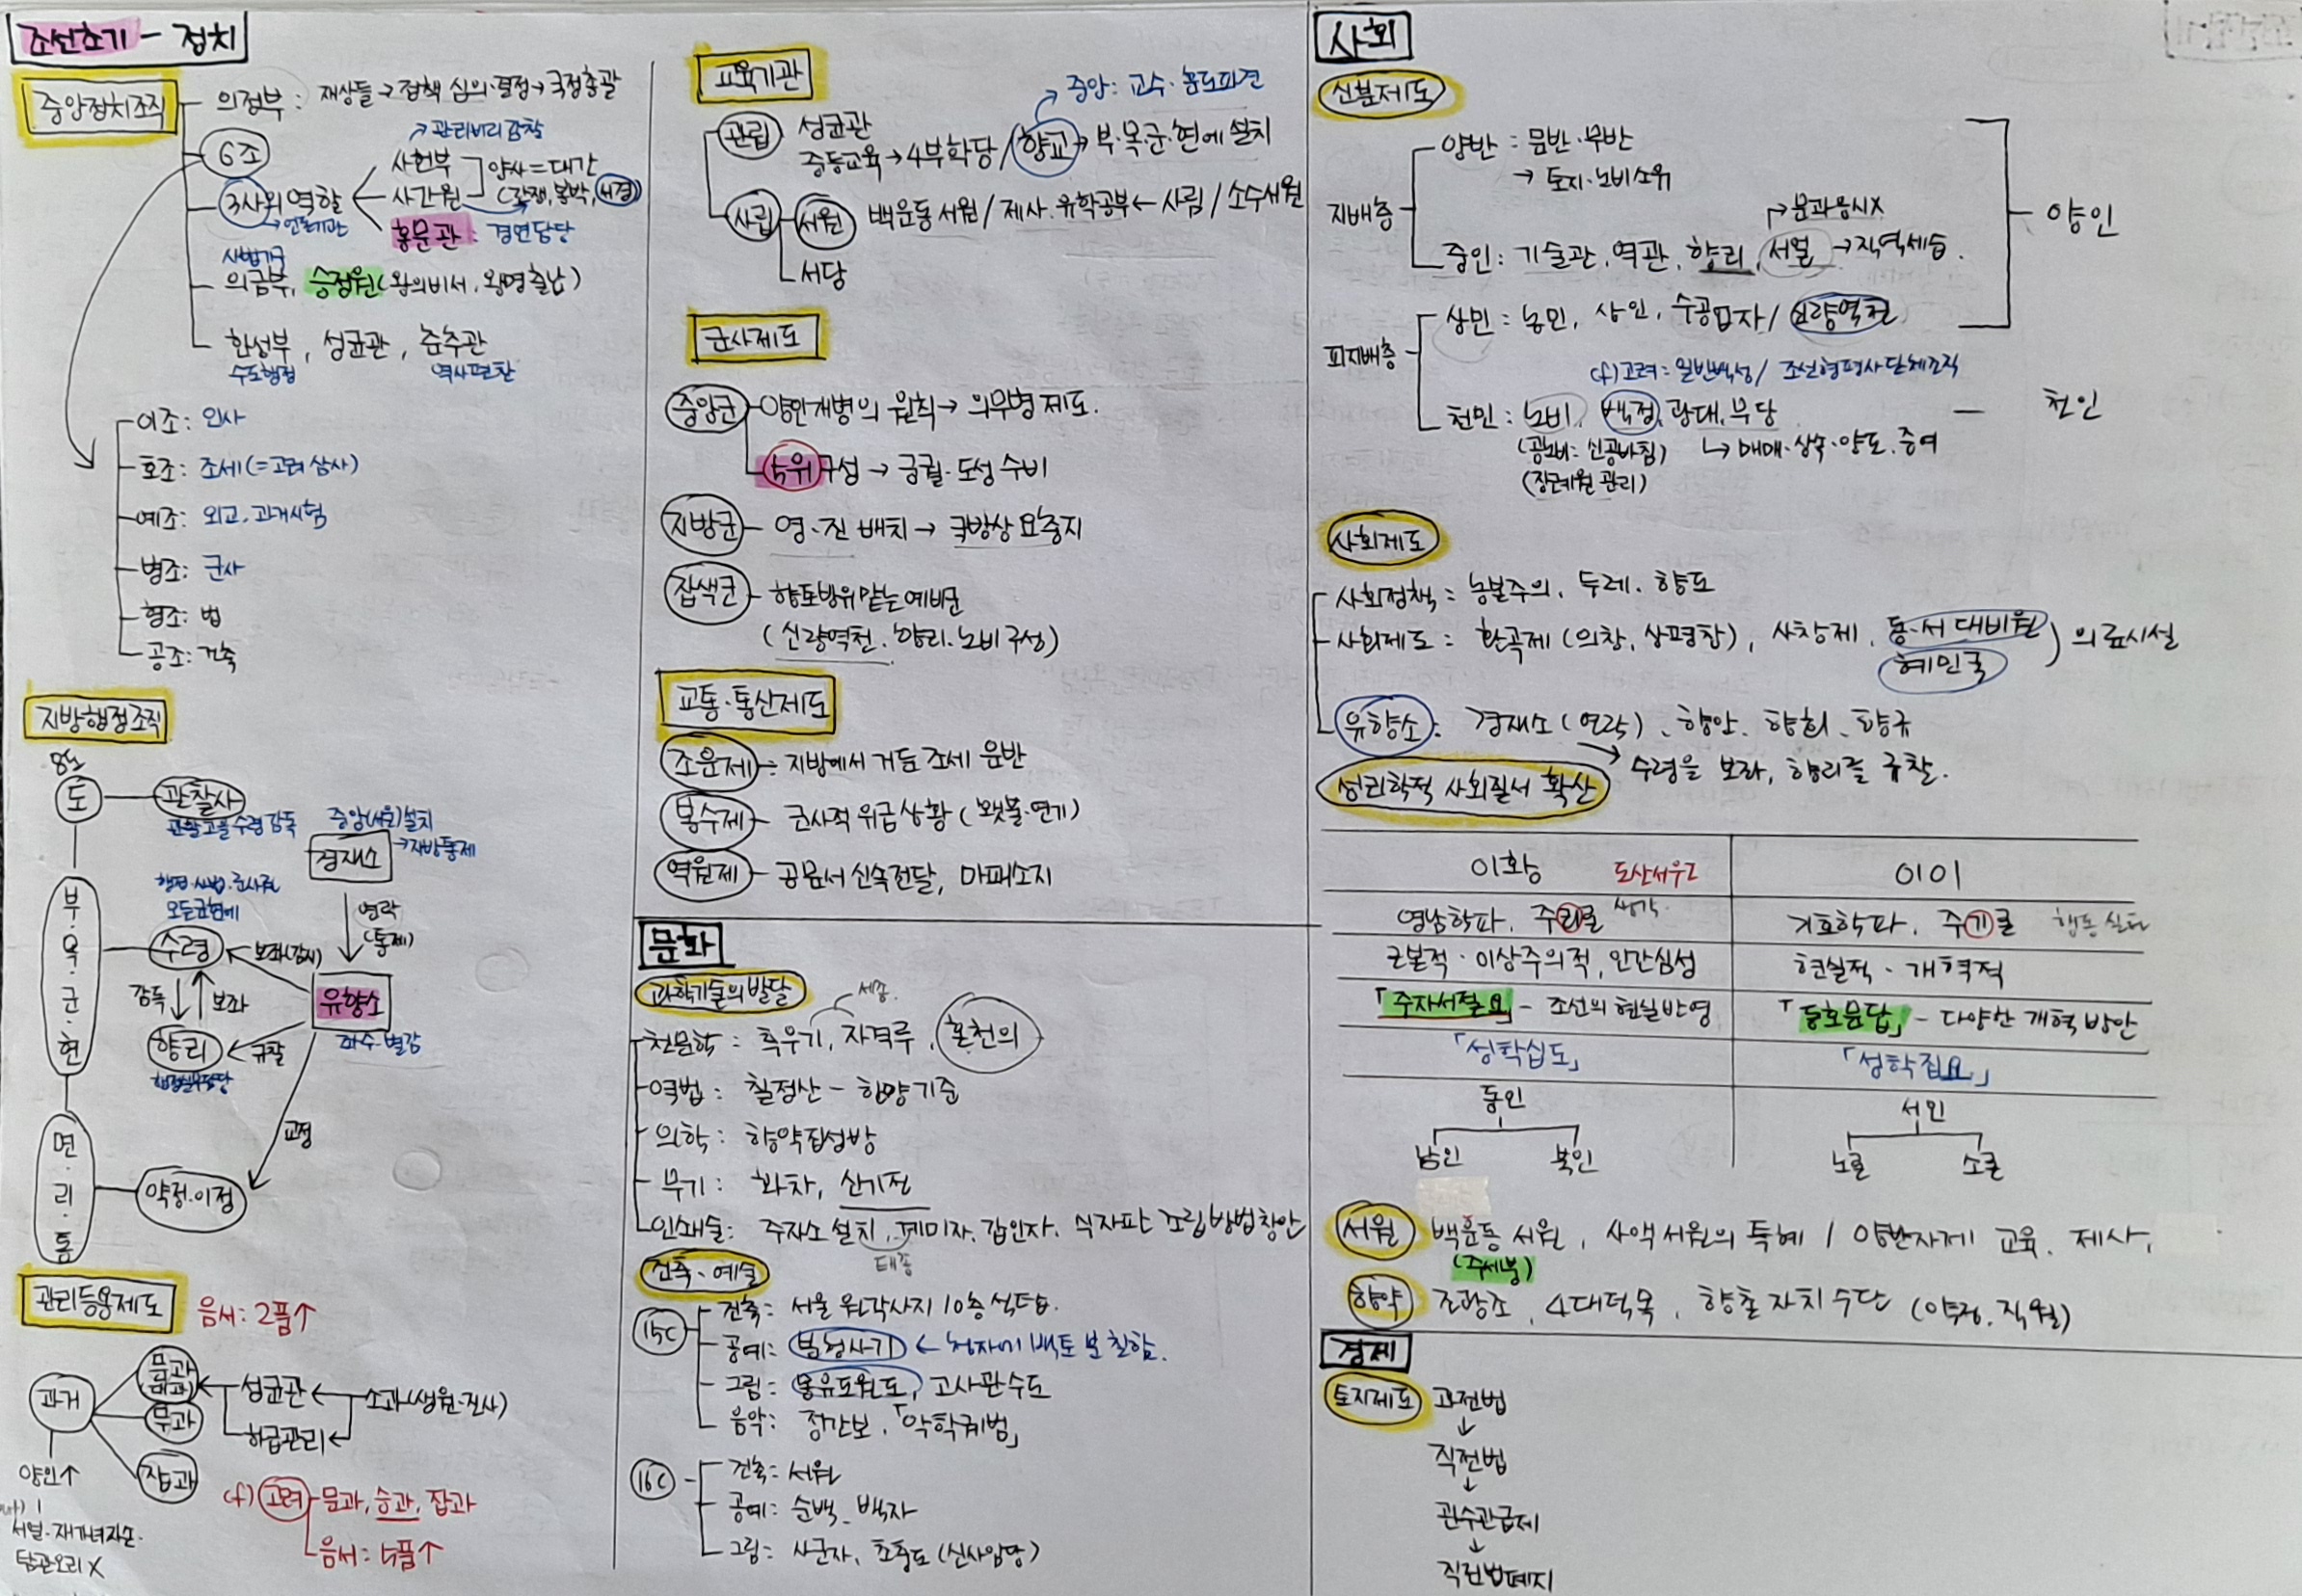 조선초기 - 정치
중앙정치조직
의정부 : 재상들 → 정책 심의·결정 → 국정총괄
6조
→ 관리비리감찰
3사의 역할
→ 언론기관
사헌부
사간원
양사 = 대간
(간쟁, 봉박, 서경)
홍문관 : 경연담당
사법기구
의금부, 승정원 (왕의비서, 왕명출납)
한성부, 성균관, 춘추관
수도행정
역사편찬
이조: 인사
호조: 조세 (=고려 삼사)
예조: 외교, 과거시험
병조: 군사
형조: 법
공조: 건축
지방행정조직
8도
도
관찰사
관할고을 수령 감독
중앙(서울)설치
경재소
→ 지방통제
행정·사법·군사권
모든군현에
연락
(통제)
부·목·군·현
수령
보좌(감시)
감독
보좌
유향소
좌수·별감
향리
규찰
행정실무담당
교정
면·리·통
약정·이정
관리등용제도
음서: 2품↑
과거
문과
(대과)
무과
잡과
성균관
하급관리
소과(생원·진사)
양인↑
서얼·재가녀자손·
탐관오리 X
cf) 고려 문과, 승과, 잡과
음서: 5품↑
교육기관
중앙: 교수·훈도파견
관립
성균관
중등교육 → 4부학당 / 향교 → 부·목·군·현에 설치
사립
서원
백운동 서원 / 제사·유학공부 ← 사림 / 소수서원
서당
군사제도
중앙군 - 양인개병의 원칙 → 의무병 제도.
5위구성 → 궁궐·도성 수비
지방군 - 영·진 배치 → 국방상 요충지
잡색군 - 향토방위 맡는 예비군
(신량역천·향리·노비 구성)
교통·통신제도
조운제 : 지방에서 거둔 조세 운반
봉수제 - 군사적 위급 상황 (횃불·연기)
역원제 - 공문서 신속전달, 마패소지
문화
과학기술의 발달
세종.
천문학 : 측우기, 자격루, 혼천의
역법 : 칠정산 - 한양기준
의학 : 향약집성방
무기 : 화차, 신기전
인쇄술: 주자소 설치, 계미자, 갑인자, 식자판 조립방법창안
태종
건축·예술
15C
건축: 서울 원각사지 10층 석탑
공예: 분청사기 ← 청자에 백토 분칠함.
그림: 몽유도원도, 고사관수도
음악: 정간보, 「악학궤범」
16C
건축: 서원
공예: 순백 백자
그림: 사군자, 초충도 (신사임당)
사회
신분제도
지배층
양반 : 문반·무반
→ 토지·노비소유
→ 문과응시X
중인: 기술관, 역관, 향리, 서얼 → 직역세습.
양인
피지배층
상민 : 농민, 상인, 수공업자 / 신량역천
cf) 고려 = 일반백성 / 조선형평사단체조직
천민 : 노비, 백정, 광대, 무당
천인
(공노비: 신공바침)
↳ 매매·상속·양도·증여
(장례원 관리)
사회제도
사회정책 : 농본주의, 두레, 향도
사회제도 : 환곡제 (의창, 상평창), 사창제, 동·서 대비원
혜민국
) 의료시설
유향소 : 경재소 (연락), 향안, 향회, 향규
→ 수령을 보좌, 향리를 규찰.
성리학적 사회질서 확산
이황
도산서원
이이
영남학파, 주리론
생각
기호학파, 주기론
행동 실천
근본적·이상주의적, 인간심성
현실적·개혁적
「주자서절요」 - 조선의 현실 반영
「동호문답」 - 다양한 개혁 방안
「성학십도」
「성학집요」
동인
서인
남인
북인
노론
소론
서원 백운동 서원, 사액서원의 특혜 / 양반자제 교육, 제사,
(주세붕)
향약 조광조, 4대덕목, 향촌 자치 수단 (약정, 직월)
경제
토지제도
과전법
↓
직전법
↓
관수관급제
↓
직전법폐지